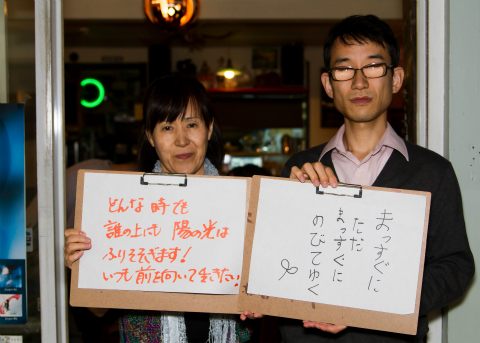 どんな時でも
誰の上にも 陽の光は
ふりそそぎます!
いつも前を向いて生きたい!
まっすぐに
ただ
まっすぐに
のびてゆく